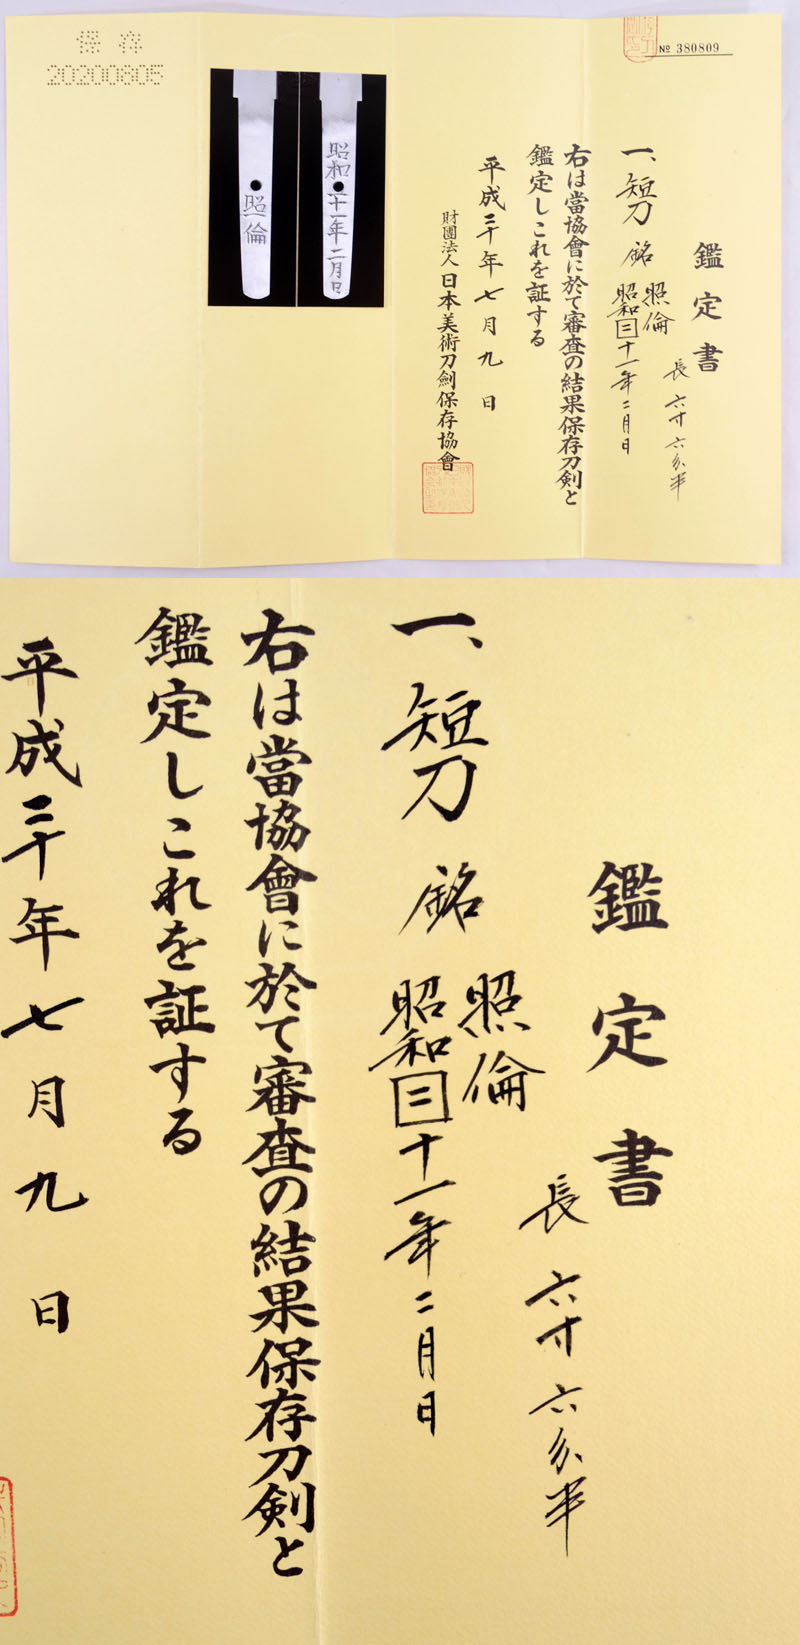 保存
20200805
№ 380809
鑑定書
長 六寸六分半
一、短刀 銘 照倫
昭和三十一年二月日
右は當協會に於て審査の結果保存刀剣と
鑑定しこれを証する
平成二十年七月九日
財團法人 日本美術刀劍保存協會
昭和三十一年二月日
照倫
鑑定書
長 六寸六分半
一、短刀 銘 照倫
昭和三十一年二月日
右は當協會に於て審査の結果保存刀剣と
鑑定しこれを証する
平成二十年七月九日